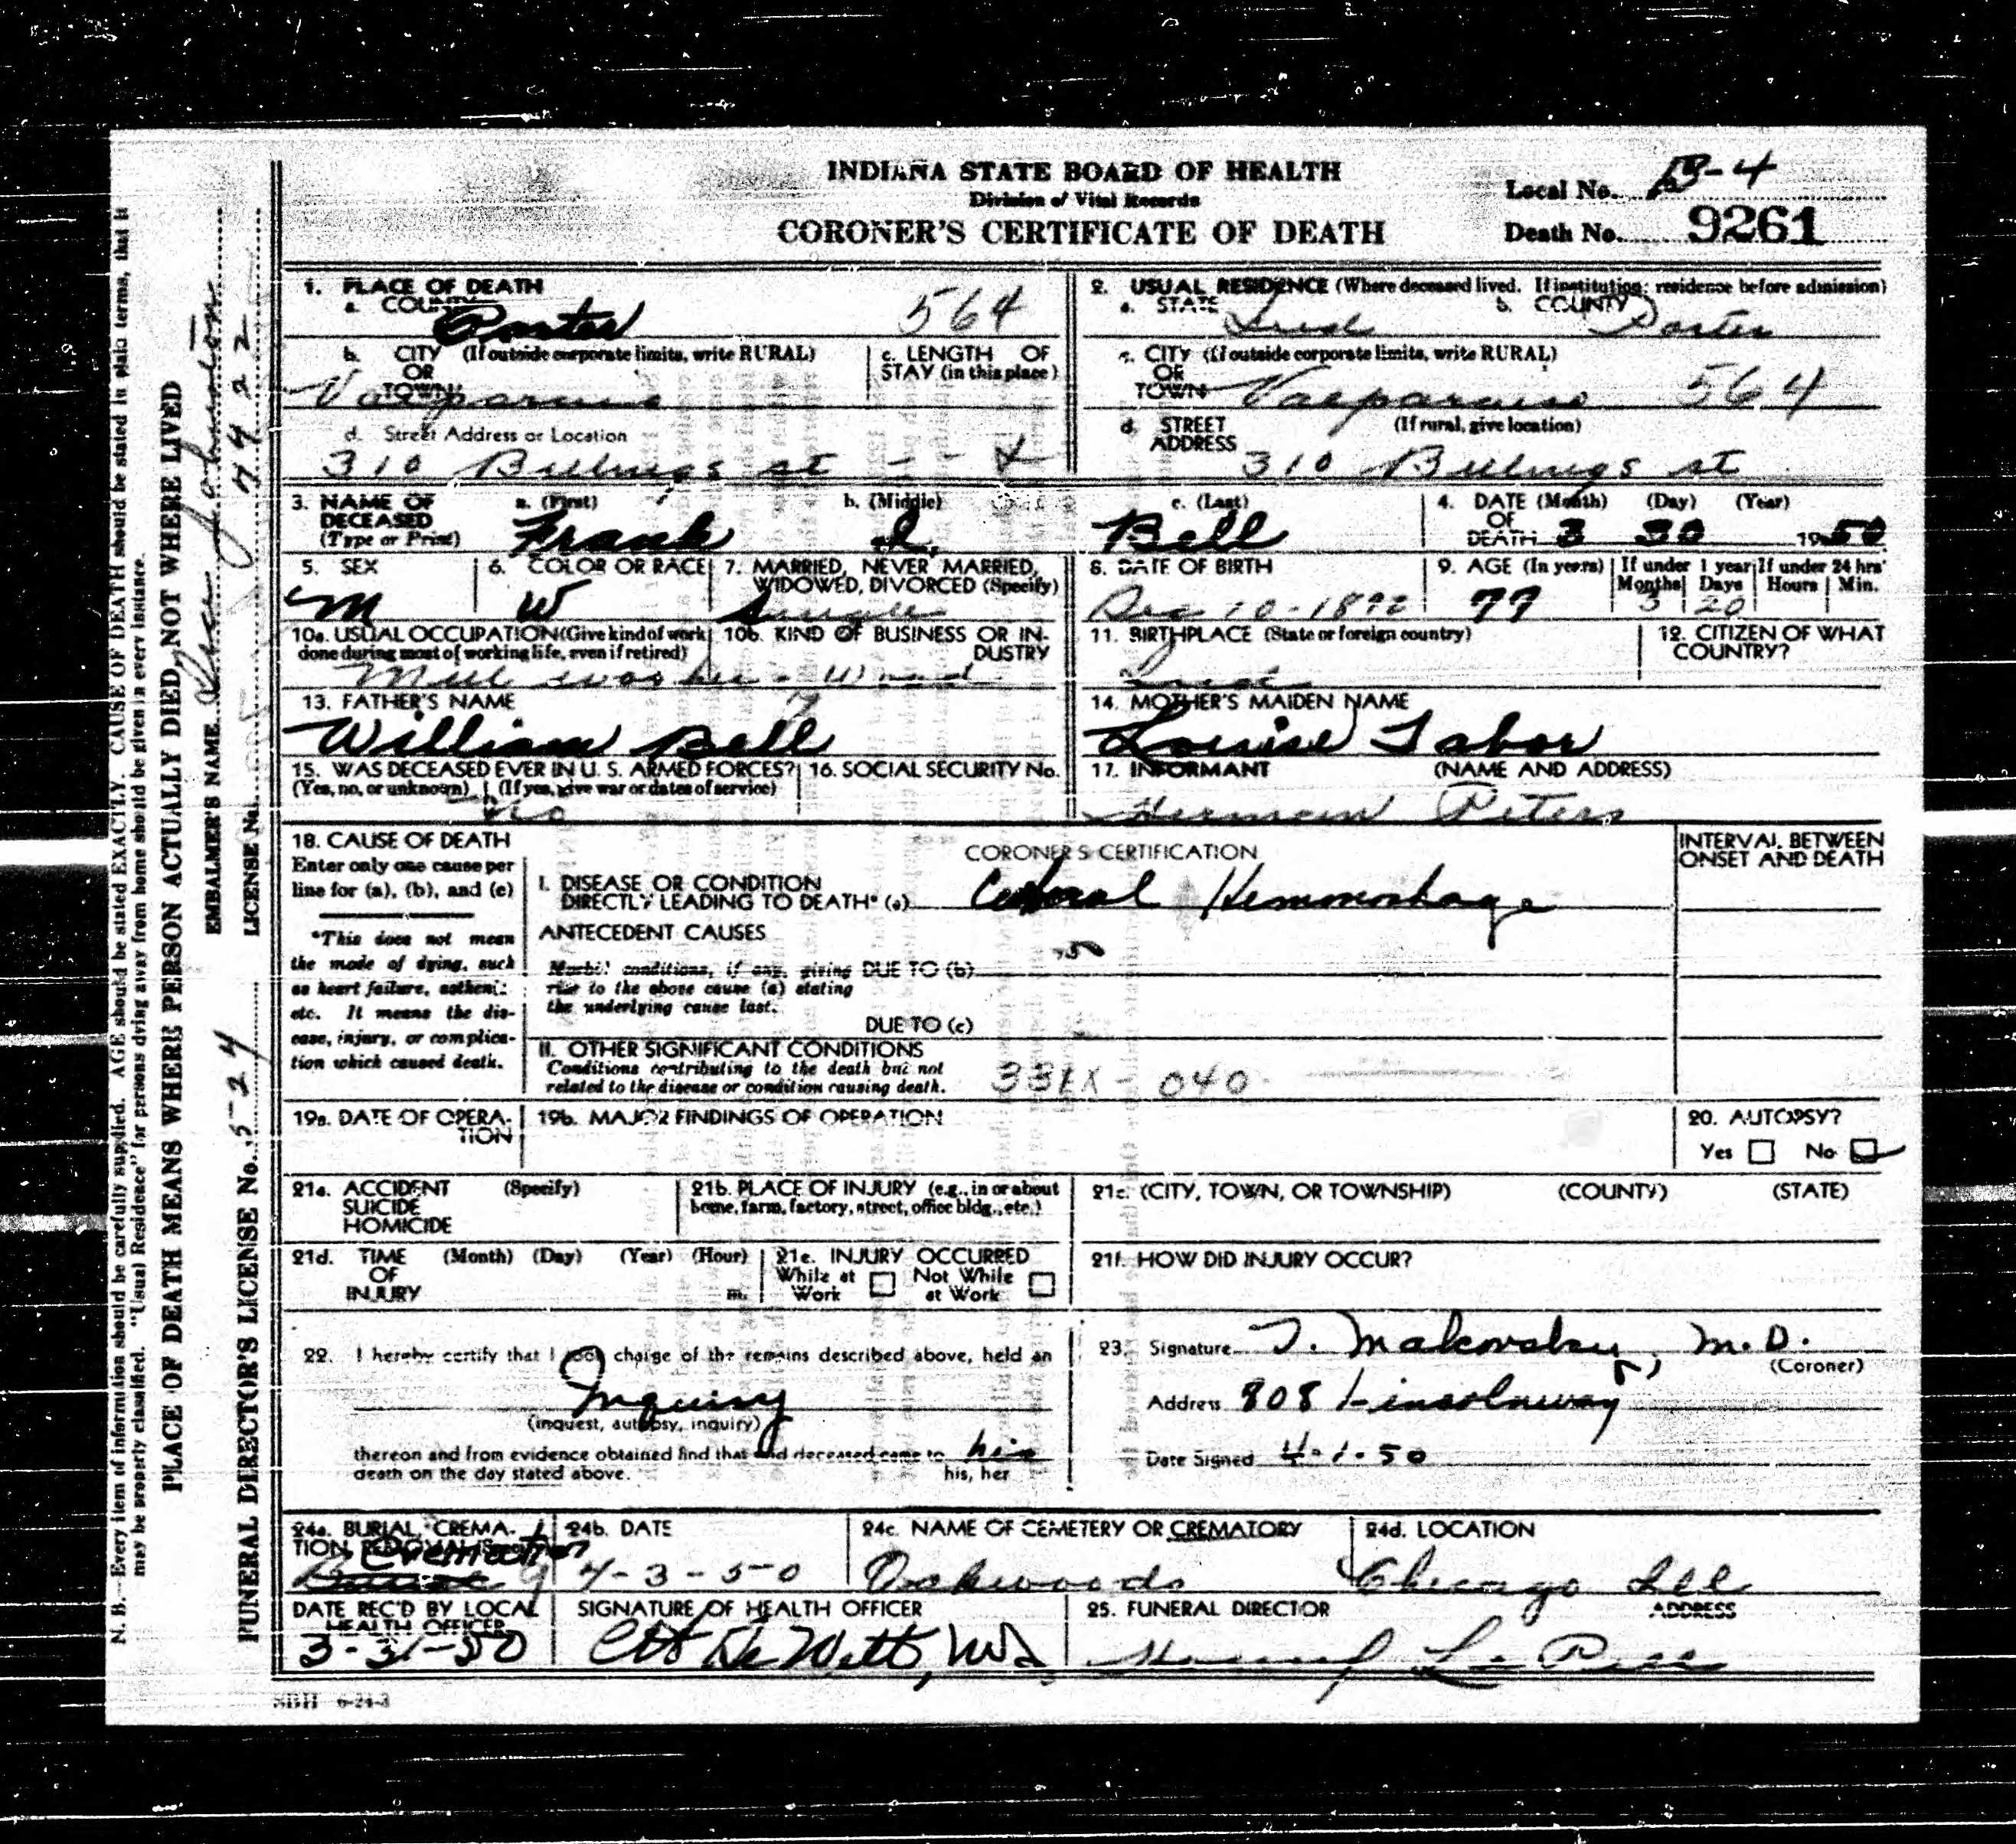 INDIANA STATE BOARD OF HEALTH
Division of Vital Records
CORONER'S CERTIFICATE OF DEATH
Local No. B-4
Death No. 9261
1. PLACE OF DEATH
a. COUNTY Porter 564
b. CITY (If outside corporate limits, write RURAL) OR TOWN Valparaiso
c. LENGTH OF STAY (in this place)
d. Street Address or Location
310 Billings st
2. USUAL RESIDENCE (Where deceased lived. If institution: residence before admission)
a. STATE Ind b. COUNTY Porter
c. CITY (If outside corporate limits, write RURAL) OR TOWN Valparaiso 564
d. STREET ADDRESS (If rural, give location)
310 Billings st
3. NAME OF DECEASED (Type or Print) a. (First) Frank b. (Middle) I. c. (Last) Bell
4. DATE OF DEATH (Month) (Day) (Year) 3 30 1950
5. SEX M
6. COLOR OR RACE W
7. MARRIED, NEVER MARRIED, WIDOWED, DIVORCED (Specify) Single
8. DATE OF BIRTH Dec 10-1872
9. AGE (In years) 77 If under 1 year Months 3 Days 20 If under 24 hrs Hours Min.
10a. USUAL OCCUPATION (Give kind of work done during most of working life, even if retired)
10b. KIND OF BUSINESS OR INDUSTRY
11. BIRTHPLACE (State or foreign country) Ind
12. CITIZEN OF WHAT COUNTRY?
13. FATHER'S NAME
William Bell
14. MOTHER'S MAIDEN NAME
Louise Tabor
15. WAS DECEASED EVER IN U. S. ARMED FORCES? (Yes, no, or unknown) (If yes, give war or dates of service) No
16. SOCIAL SECURITY No.
17. INFORMANT (NAME AND ADDRESS)
Herman Peters
18. CAUSE OF DEATH
Enter only one cause per line for (a), (b), and (c)
*This does not mean the mode of dying, such as heart failure, asthenia etc. It means the disease, injury, or complication which caused death.
CORONER'S CERTIFICATION
I. DISEASE OR CONDITION DIRECTLY LEADING TO DEATH* (a) Cerebral Hemmorhage
ANTECEDENT CAUSES
Morbid conditions, if any, giving rise to the above cause (a) stating the underlying cause last.
DUE TO (b)
DUE TO (c)
II. OTHER SIGNIFICANT CONDITIONS
Conditions contributing to the death but not related to the disease or condition causing death.
331X - 040
INTERVAL BETWEEN ONSET AND DEATH
19a. DATE OF OPERATION
19b. MAJOR FINDINGS OF OPERATION
20. AUTOPSY?
Yes No
21a. ACCIDENT SUICIDE HOMICIDE (Specify)
21b. PLACE OF INJURY (e.g., in or about home, farm, factory, street, office bldg., etc.)
21c. (CITY, TOWN, OR TOWNSHIP) (COUNTY) (STATE)
21d. TIME OF INJURY (Month) (Day) (Year) (Hour) m.
21e. INJURY OCCURRED
While at Work Not While at Work
21f. HOW DID INJURY OCCUR?
22. I hereby certify that I took charge of the remains described above, held an
Inquiry
(inquest, autopsy, inquiry)
thereon and from evidence obtained find that said deceased came to his
his, her
death on the day stated above.
23. Signature T. Makovsky, M.D.
(Coroner)
Address 808 Lincolnway
Date Signed 4-1-50
24a. BURIAL, CREMATION, REMOVAL (Specify) Cremation
24b. DATE 4-3-50
24c. NAME OF CEMETERY OR CREMATORY Oakwoods
24d. LOCATION Chicago Ill
DATE REC'D BY LOCAL HEALTH OFFICER
3-31-50
SIGNATURE OF HEALTH OFFICER
De Witt, MD
25. FUNERAL DIRECTOR ADDRESS
SBH 6-24-3
N. B.—Every item of information should be carefully supplied. AGE should be stated EXACTLY. CAUSE OF DEATH should be stated in plain terms, that it
may be properly classified. "Usual Residence" for persons dying away from home should be given in every instance.
PLACE OF DEATH MEANS WHERE PERSON ACTUALLY DIED, NOT WHERE LIVED
EMBALMER'S NAME Johnston
FUNERAL DIRECTOR'S LICENSE No. 524
LICENSE No.